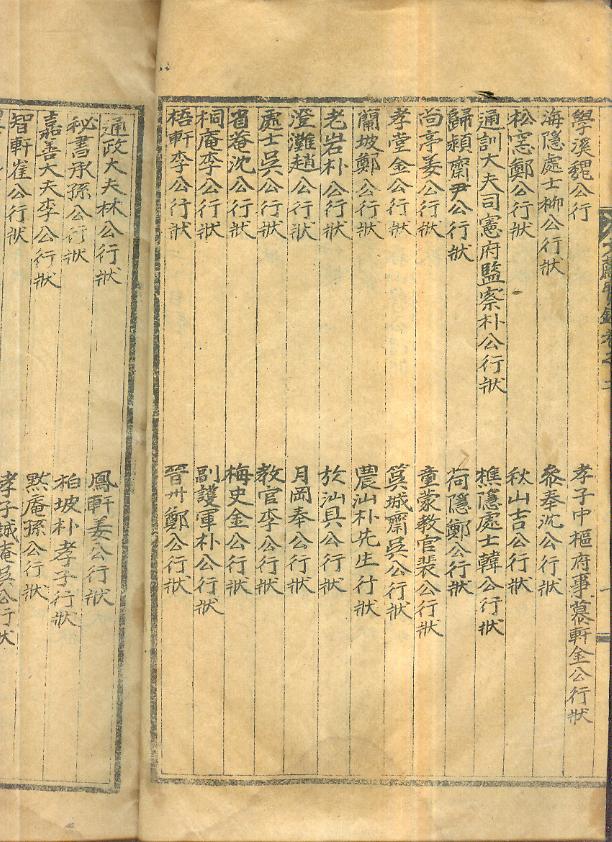 學溪魏公行
孝子中樞府事慕軒金公行狀
海隱處士柳公行狀
參奉沈公行狀
松窩鄭公行狀
秋山吉公行狀
通訓大夫司憲府監察朴公行狀
樵隱處士韓公行狀
歸顔齋尹公行狀
荷隱鄭公行狀
尚亭姜公行狀
童蒙教官裴公行狀
孝堂金公行狀
箕城齋吳公行狀
蘭坡鄭公行狀
農山朴先生行狀
老岩朴公行狀
於汕具公行狀
澄灘趙公行狀
月岡奉公行狀
處士吳公行狀
教官李公行狀
省菴沈公行狀
梅史金公行狀
桐庵李公行狀
副護軍朴公行狀
梧軒李公行狀
晉州鄭公行狀
通政大夫林公行狀
鳳軒姜公行狀
秘書丞孫公行狀
柏坡朴孝子行狀
嘉善大夫李公行狀
默庵孫公行狀
智軒崔公行狀
孝子誠菴吳公行狀